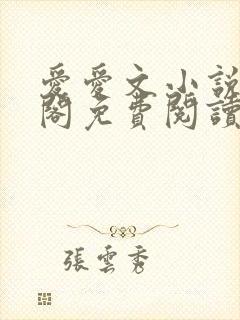 愛愛文小說
閣免費閱讀
張雲秀